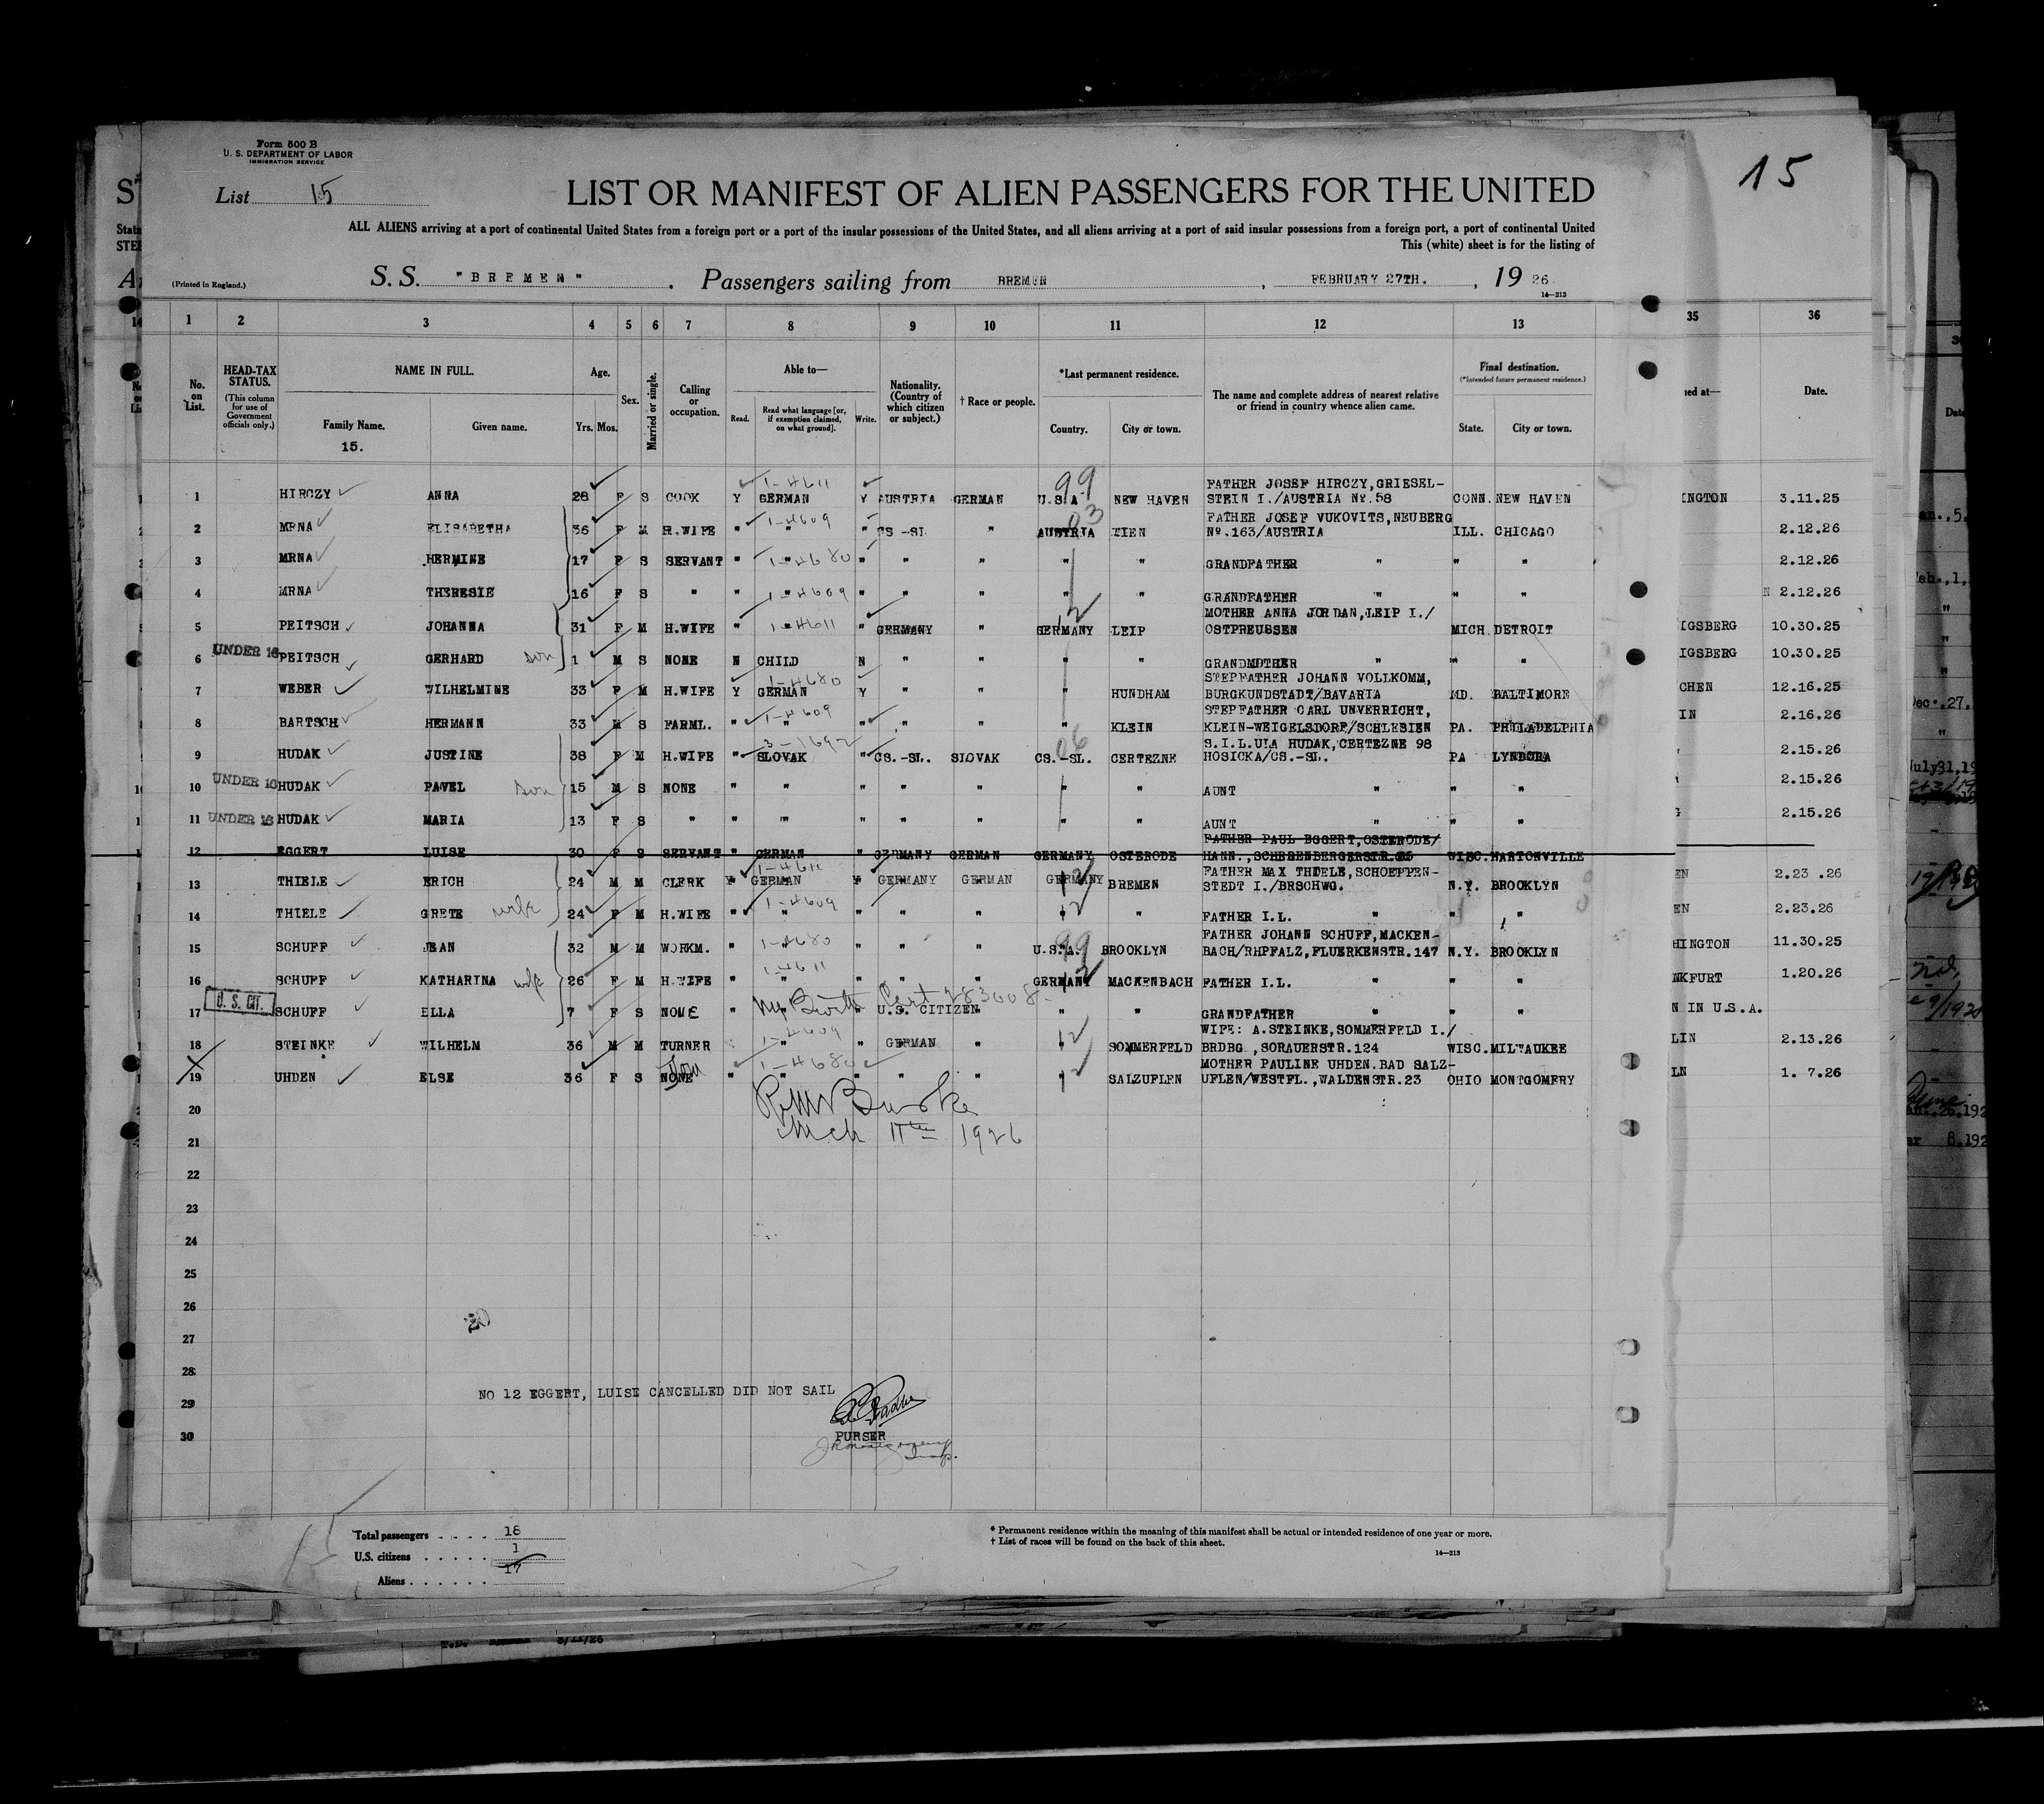 Form 500 B
U. S. DEPARTMENT OF LABOR
IMMIGRATION SERVICE
List 15
15
LIST OR MANIFEST OF ALIEN PASSENGERS FOR THE UNITED
ALL ALIENS arriving at a port of continental United States from a foreign port or a port of the insular possessions of the United States, and all aliens arriving at a port of said insular possessions from a foreign port, a port of continental United
This (white) sheet is for the listing of
(Printed in England.) S. S. "BREMEN". Passengers sailing from BREMEN, FEBRUARY 27TH., 19 26.
14—213
1 2 3 4 5 6 7 8 9 10 11 12 13 35 36
No. on List.
HEAD-TAX STATUS. (This column for use of Government officials only.)
NAME IN FULL. Family Name. Given name.
15.
Age. Yrs. Mos.
Sex.
Married or single.
Calling or occupation.
Able to— Read. Read what language [or, if exemption claimed, on what ground]. Write.
Nationality. (Country of which citizen or subject.)
† Race or people.
*Last permanent residence. Country. City or town.
The name and complete address of nearest relative or friend in country whence alien came.
Final destination. (*Intended future permanent residence.) State. City or town.
Date.
1-4611 99 FATHER JOSEF HIRCZY,GRIESEL-
1 HIRCZY ANNA 28 F S COOK Y GERMAN Y AUSTRIA GERMAN U.S.A. NEW HAVEN STEIN I./AUSTRIA No.58 CONN. NEW HAVEN INGTON 3.11.25
1-4609 03 FATHER JOSEF VUKOVITS,NEUBERG
2 MRNA ELISABETHA 36 F M H.WIFE " " " CS-SL " AUSTRIA WIEN No.163/AUSTRIA ILL. CHICAGO 2.12.26
3 MRNA HERMINE 17 F S SERVANT " 1-4680 " " " " " GRANDFATHER " " " 2.12.26
4 MRNA THERESIE 16 F S " " 1-4609 " " " " " GRANDFATHER " " " 2.12.26
12 MOTHER ANNA JORDAN,LEIP I./
5 PEITSCH JOHANNA 31 F M H.WIFE " 1-4611 " GERMANY " GERMANY LEIP OSTPREUSSEN MICH. DETROIT IGSBERG 10.30.25
UNDER 16
6 PEITSCH GERHARD son 1 M S NONE N CHILD N " " " " GRANDMOTHER " " " IGSBERG 10.30.25
1-4680 STEPFATHER JOHANN VOLLKOMM,
7 WEBER WILHELMINE 33 F M H.WIFE Y GERMAN Y " " " HUNDHAM BURGKUNDSTADT/BAVARIA MD. BALTIMORE CHEN 12.16.25
1-4609 STEPFATHER CARL UNVERRICHT,
8 BARTSCH HERMANN 33 M S FARML. " " " " " " KLEIN KLEIN-WEIGELSDORF/SCHLESIEN PA. PHILADELPHIA IN 2.16.26
3-1692 06 S.I.L.ULA HUDAK,CERTEZNE 98
9 HUDAK JUSTINE 38 F M H.WIFE " SLOVAK " CS.-SL. SLOVAK CS.-SL. CERTEZNE HOSICKA/CS.-SL. PA LYNDORA 2.15.26
UNDER 16
10 HUDAK PAVEL son 15 M S NONE " " " " " " " AUNT " " " 2.15.26
UNDER 16
11 HUDAK MARIA 13 F S " " " " " " " " AUNT " " " 2.15.26
FATHER PAUL EGGERT,OSTERODE/
12 EGGERT LUISE 30 F S SERVANT " GERMAN " GERMANY GERMAN GERMANY OSTERODE HANN.,SCHERENBERGERSTR.25 WISC. HARTONVILLE
1-4611 12 FATHER MAX THIELE,SCHOEPPEN-
13 THIELE ERICH 24 M M CLERK Y GERMAN Y GERMANY GERMAN GERMANY BREMEN STEDT I./BRSCHWG. N.Y. BROOKLYN EN 2.23.26
14 THIELE GRETE wife 24 F M H.WIFE " 1-4609 " " " 12 " FATHER I.L. " " " EN 2.23.26
1-4680 99 FATHER JOHANN SCHUFF,MACKEN-
15 SCHUFF JEAN 32 M M WORKM. " " " " " U.S.A. BROOKLYN BACH/RHPFALZ,FLUERKENSTR.147 N.Y. BROOKLYN HINGTON 11.30.25
16 SCHUFF KATHARINA wife 26 F M H.WIFE " 1-4611 " " " GERMANY 12 MACKENBACH FATHER I.L. " " " NKFURT 1.20.26
U. S. CIT. Birth Cert 283608
17 SCHUFF ELLA 7 F S NONE " " " U.S. CITIZEN " " GRANDFATHER " " " N IN U.S.A.
1-4609 12 WIFE: A.STEINKE,SOMMERFELD I./
18 STEINKE WILHELM 36 M M TURNER " " " GERMAN " " SOMMERFELD BRDBG.,SORAUERSTR.124 WISC. MILWAUKEE LIN 2.13.26
1-4680 12 MOTHER PAULINE UHDEN.BAD SALZ-
19 UHDEN ELSE 36 F S NONE " " " " " " SALZUFLEN UFLEN/WESTFL.,WALDENSTR.23 OHIO MONTGOMERY LN 1. 7.26
20
21 Mch 11th 1926
22
23
24
25
26
27
28
NO 12 EGGERT, LUISE CANCELLED DID NOT SAIL
29
30 PURSER
Total passengers 18
U.S. citizens 1
Aliens 17
* Permanent residence within the meaning of this manifest shall be actual or intended residence of one year or more.
† List of races will be found on the back of this sheet.
14—213